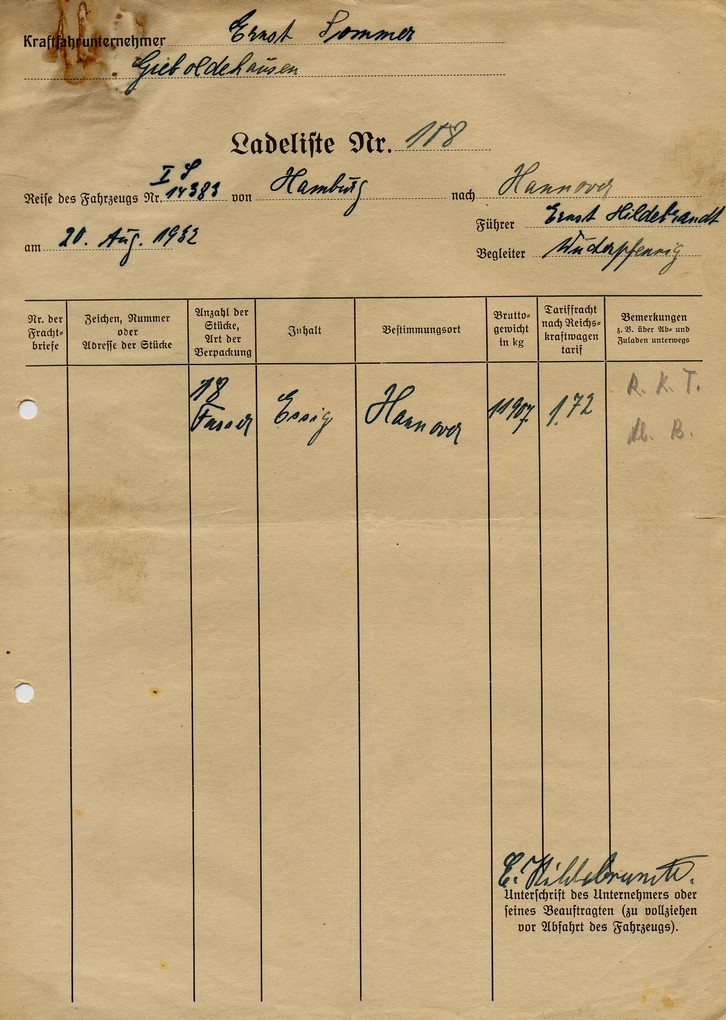 Kraftfahrunternehmer Ernst Sommer
Gieboldehausen
Ladeliste Nr. 108
Reise des Fahrzeugs Nr. I S 14383 von Hamburg nach Hannover
Führer Ernst Hildebrandt
am 20. Aug. 1932
Begleiter Wüderpfennig
Nr. der Fracht-briefe
Zeichen, Nummer oder Adresse der Stücke
Anzahl der Stücke, Art der Verpackung
Inhalt
Bestimmungsort
Brutto-gewicht in kg
Tariffracht nach Reichs-kraftwagen tarif
Bemerkungen z. B. über Ab- und Zuladen unterwegs
18 Fässer Essig Hannover 11907. 1,72 R. K. T.
B.
E. Hildebrandt.
Unterschrift des Unternehmers oder
seines Beauftragten (zu vollziehen
vor Abfahrt des Fahrzeugs).